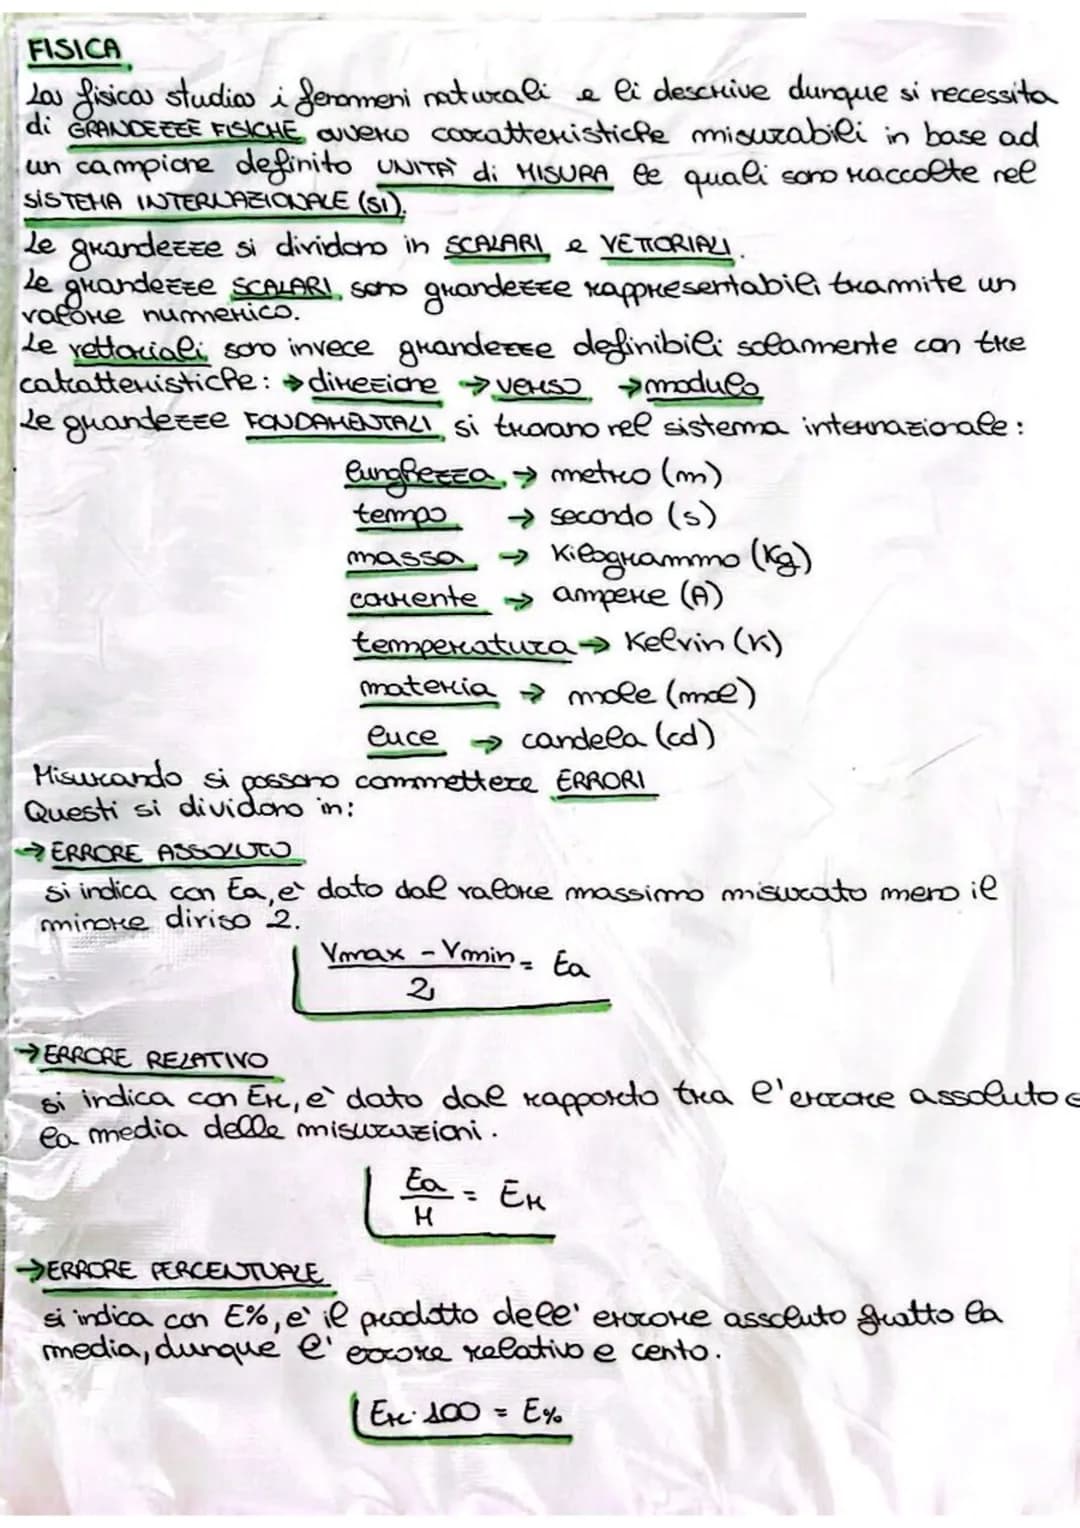 FISICA
La fisica studia i fenomeni naturali e li descrive dunque si necessita
di GRANDEZZE FISICHE ovvero caratteristiche misurabili in base ad
un campione definito UNITÀ di MISURA le quali sono raccolte nel
SISTEMA INTERNAZIONALE (SI).
Le grandezze si dividono in SCALARI e VETTORIALI.
Le grandezze SCALARI sono grandezze rappresentabili tramite un
valore numerico.
Le vettoriali sono invece grandezze definibili solamente con tre
caratteristiche: → direzione → verso → modulo
Le grandezze FONDAMENTALI si trovano nel sistema internazionale:
lunghezza → metro (m)
tempo → secondo (s)
massa → Kilogrammo (Kg)
corrente → ampere (A)
temperatura → Kelvin (K)
materia → mole (mol)
luce → candela (cd)
Misurando si possono commettere ERRORI
Questi si dividono in:
→ ERRORE ASSOLUTO
si indica con Ea, e' dato dal valore massimo misurato meno il
minore diviso 2.
Vmax - Vmin = Ea
2
→ ERRORE RELATIVO
si indica con Er, e' dato dal rapporto tra l'errore assoluto e
la media delle misurazioni.
Ea = Er
M
→ ERRORE PERCENTUALE
si indica con E%, e' il prodotto dell' errore assoluto fratto la
media, dunque l' errore relativo e cento.
Er · 100 = E%